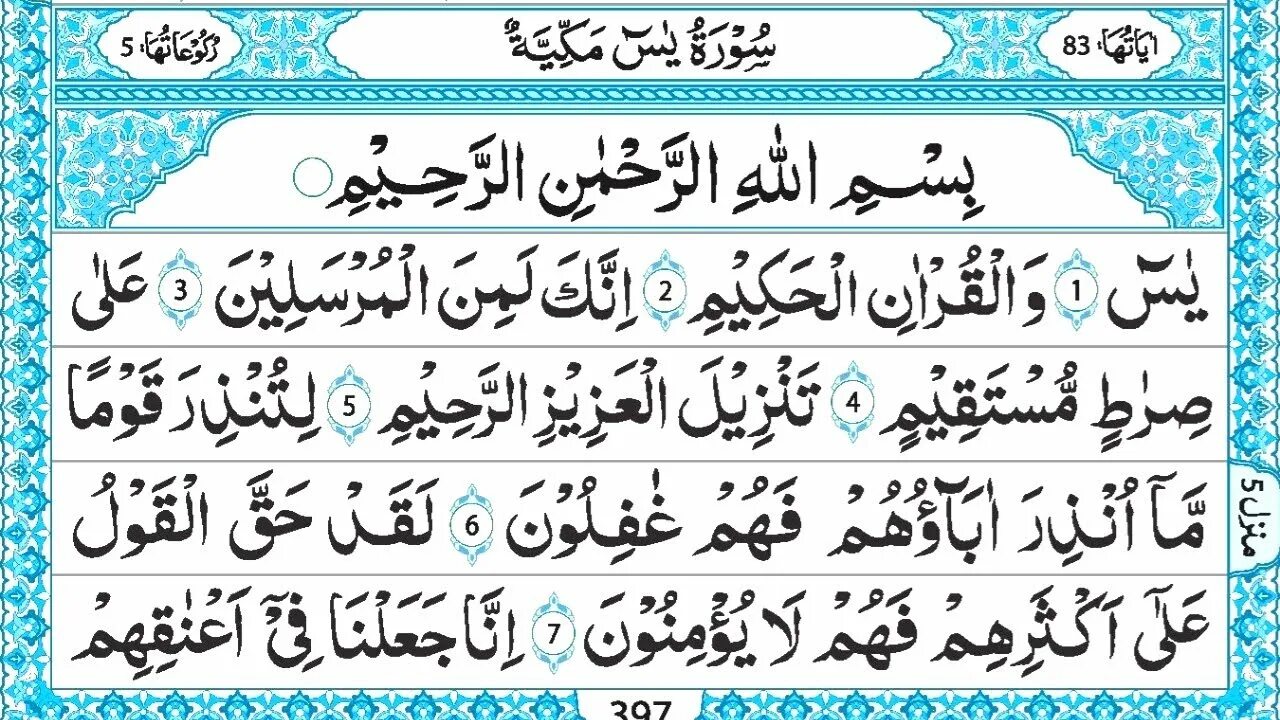 اٰيَاتُهَا: 83 سُوْرَةُ يٰسٓ مَكِّيَّةٌ رُكُوْعَاتُهَا: 5
بِسْمِ اللّٰهِ الرَّحْمٰنِ الرَّحِيْمِ
يٰسٓ 1 وَالْقُرْاٰنِ الْحَكِيْمِ 2 اِنَّكَ لَمِنَ الْمُرْسَلِيْنَ 3 عَلٰى
صِرَاطٍ مُّسْتَقِيْمٍ 4 تَنْزِيْلَ الْعَزِيْزِ الرَّحِيْمِ 5 لِتُنْذِرَ قَوْمًا
مَّآ اُنْذِرَ اٰبَآؤُهُمْ فَهُمْ غٰفِلُوْنَ 6 لَقَدْ حَقَّ الْقَوْلُ
عَلٰٓى اَكْثَرِهِمْ فَهُمْ لَا يُؤْمِنُوْنَ 7 اِنَّا جَعَلْنَا فِيْٓ اَعْنٰقِهِمْ
منزل 5
397